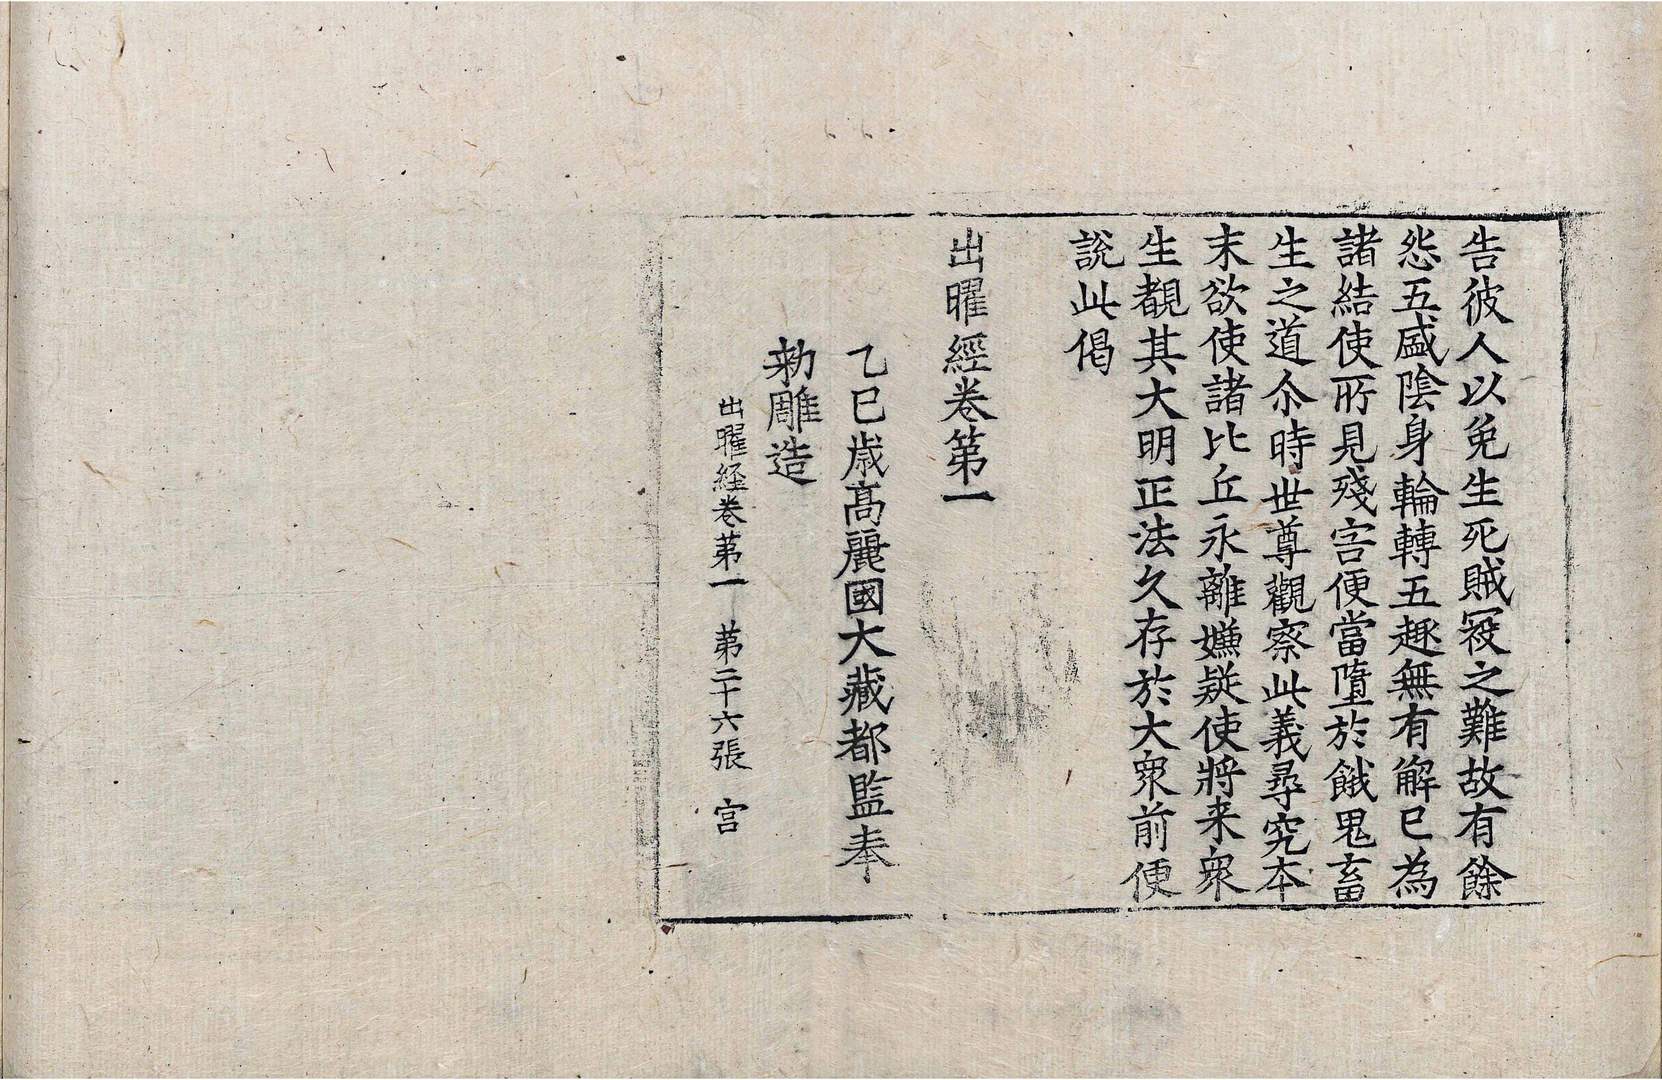 告彼人以免生死賊寇之難故有餘
怨五盛陰身輪轉五趣無有解已為
諸結使所見殘害便當墮於餓鬼畜
生之道尒時世尊觀察此義尋究本
末欲使諸比丘永離嫌疑使將来衆
生覩其大明正法久存於大衆前便
說此偈
出曜經卷第一
乙巳歲高麗國大藏都監奉
勑雕造
出曜経卷第一 第二十六張 宫